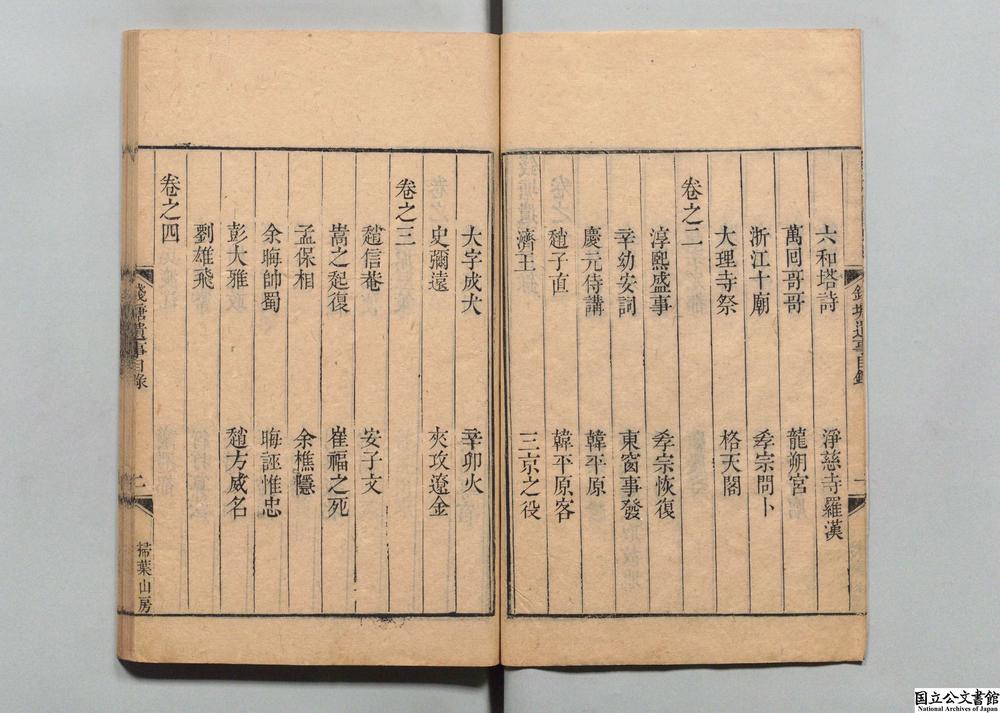 六和塔詩 淨慈寺羅漢
萬囘哥哥 龍朔宮
浙江十廟 孝宗問卜
大理寺祭 格天閣
卷之二
淳熙盛事 孝宗恢復
辛幼安詞 東窗事發
慶元侍講 韓平原
趙子直 韓平原客
濟王 三京之役
大字成犬 辛卯火
史彌遠 夾攻遼金
卷之三
趙信菴 安子文
嵩之起復 崔福之死
孟保相 余樵隱
余晦帥蜀 晦誣惟忠
彭大雅 趙方威名
劉雄飛
卷之四
錢塘遺事目錄 二 掃葉山房
国立公文書館
National Archives of Japan